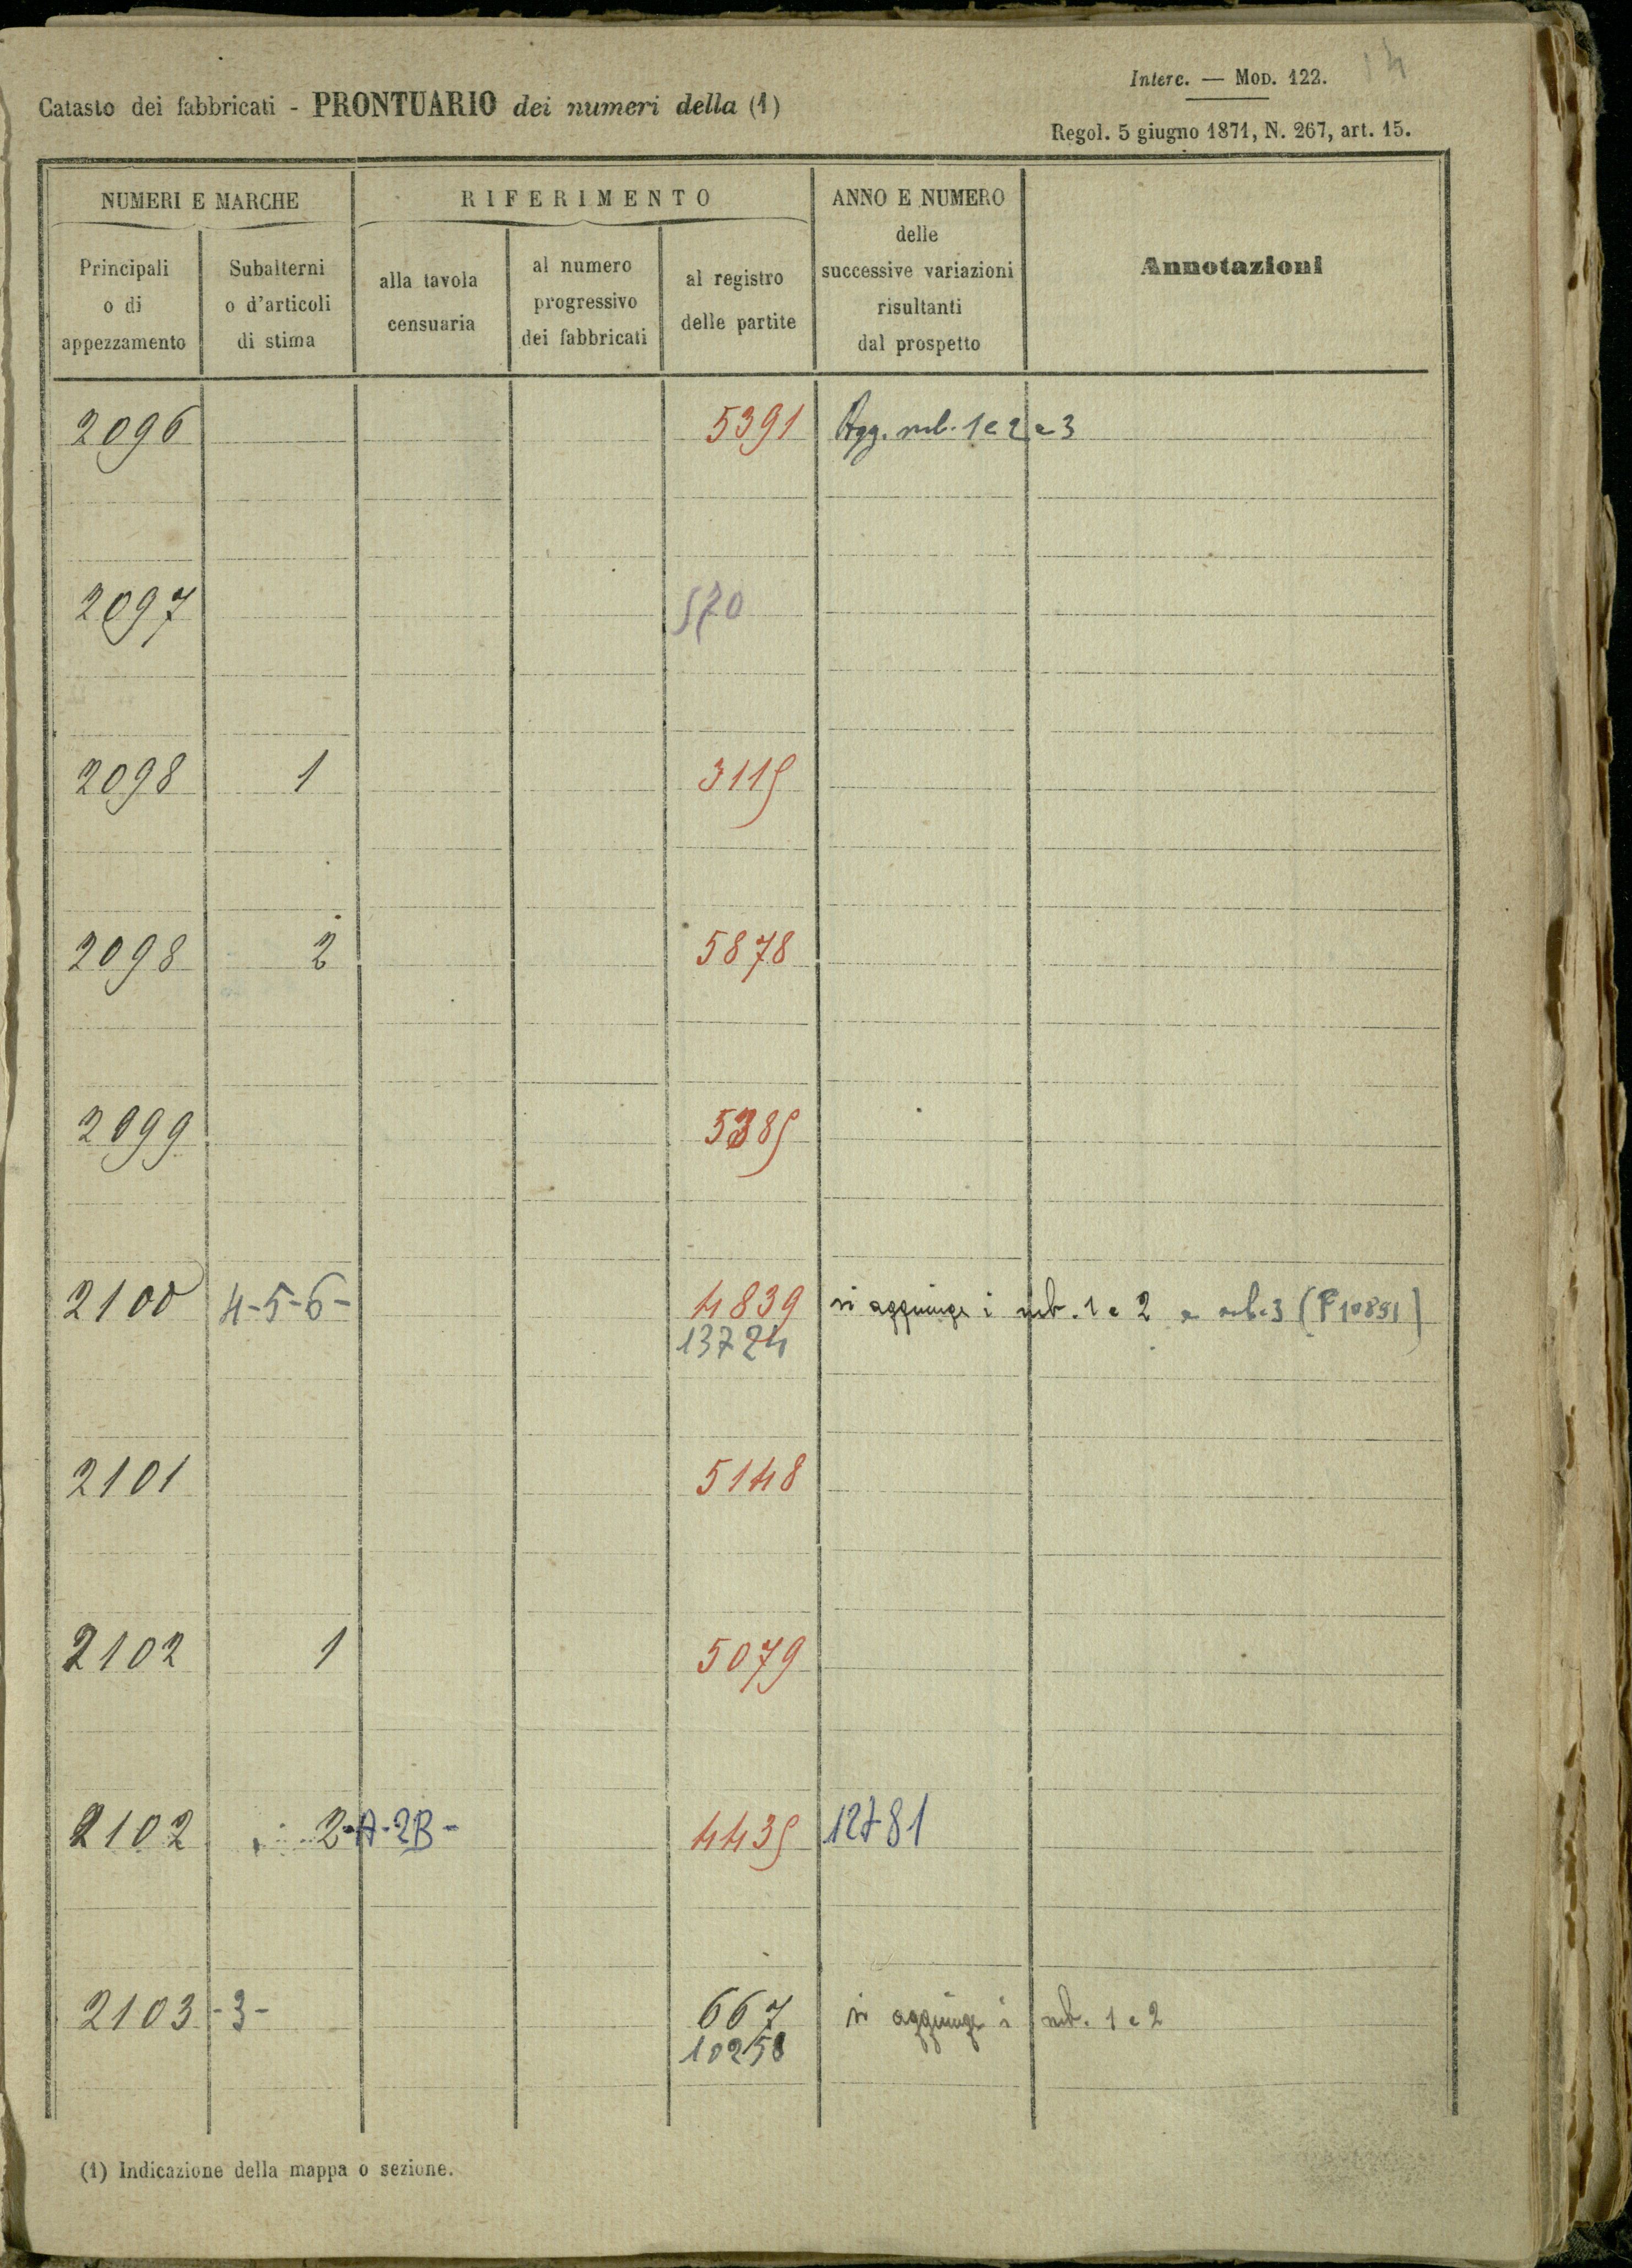 14
Interc. — Mod. 122.
Catasto dei fabbricati - PRONTUARIO dei numeri della (1)
Regol. 5 giugno 1871, N. 267, art. 15.
NUMERI E MARCHE
RIFERIMENTO
ANNO E NUMERO
delle
successive variazioni
risultanti
dal prospetto
Annotazioni
Principali
o di
appezzamento
Subalterni
o d'articoli
di stima
alla tavola
censuaria
al numero
progressivo
dei fabbricati
al registro
delle partite
2096 5391 Agg. sub. 1 e 2 e 3
2097 570
2098 1 3115
2098 2 5878
2099 5385
2100 4-5-6- 4839 si aggiunge i sub. 1 e 2 e sub. 3 (P 10891)
13724
2101 5148
2102 1 5079
2102 2-A-2B- 4435 12781
2103 -3- 667 si aggiunge i sub. 1 e 2
10258
(1) Indicazione della mappa o sezione.